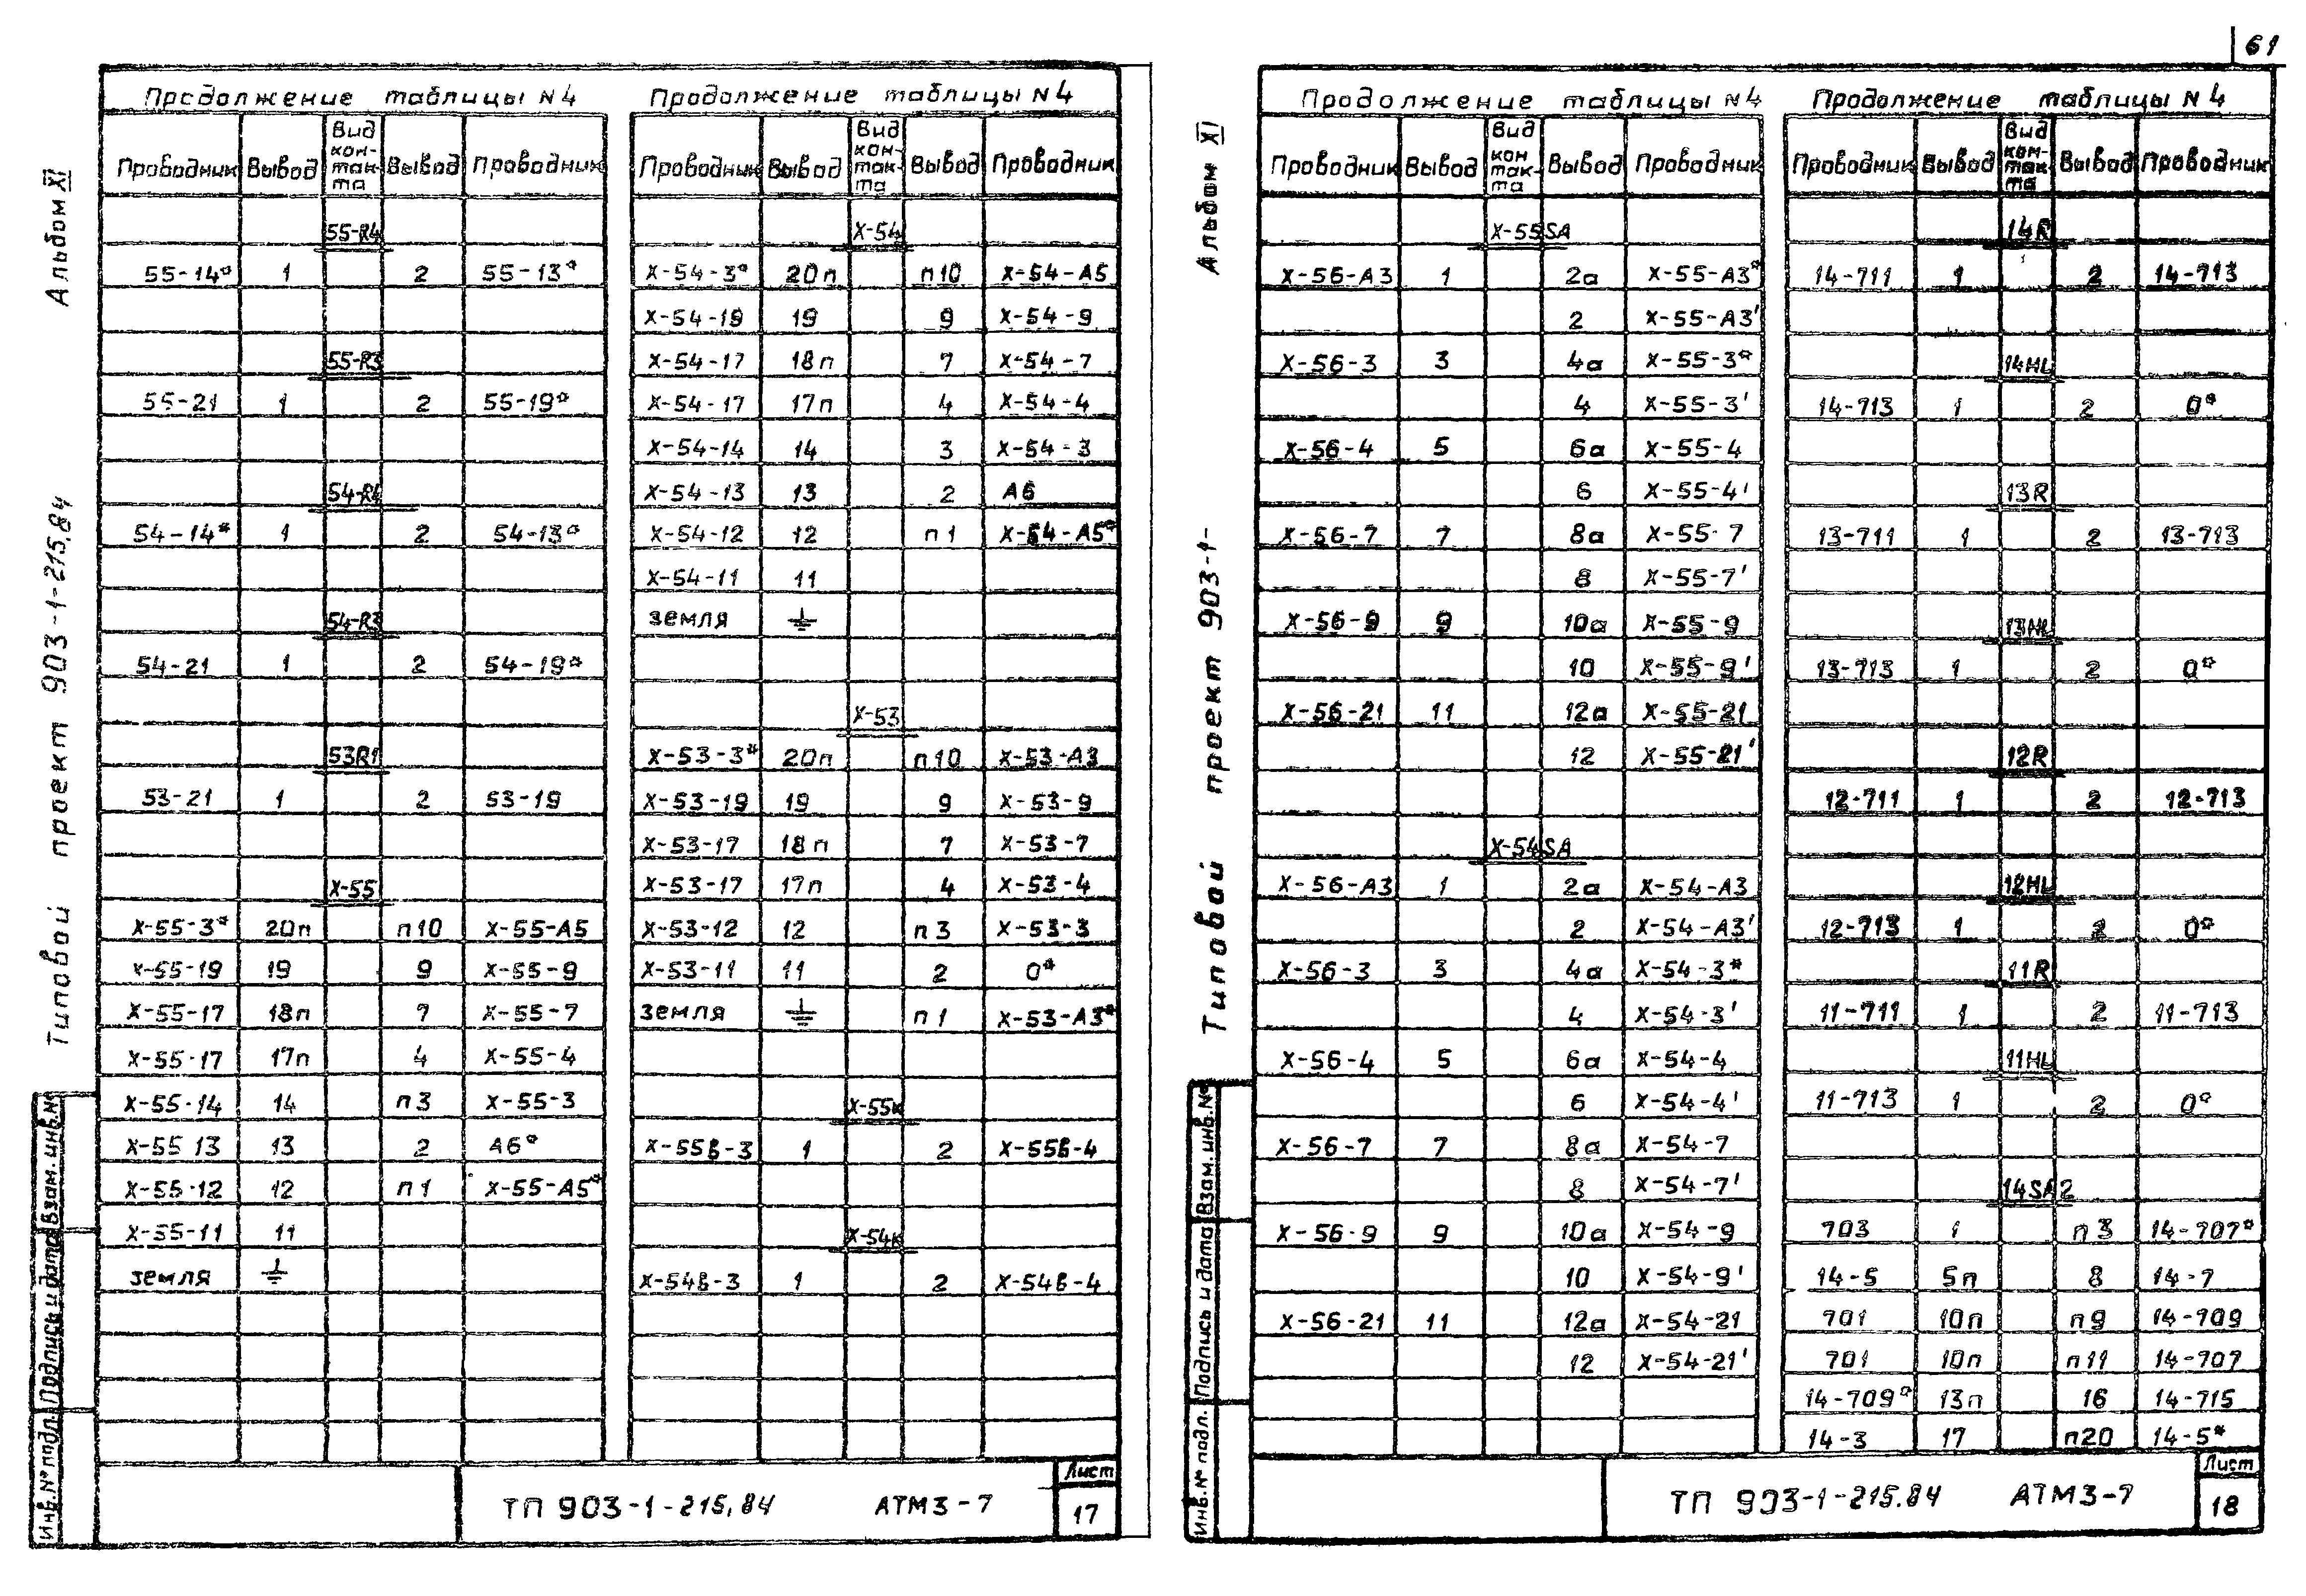 61
Альбом XI
Типовой проект 903-1-215,84
Взам. инв. №
Подпись и дата
Инв. № подл.
Продолжение таблицы N4
Проводник Вывод Вид кон-так-та Вывод Проводник
55-R4
55-14* 1 2 55-13*
55-R3
55-21 1 2 55-19*
54-R4
54-14* 1 2 54-13*
54-R3
54-21 1 2 54-19*
53R1
53-21 1 2 53-19
X-55
X-55-3* 20п п10 X-55-А5
X-55-19 19 9 X-55-9
X-55-17 18п 7 X-55-7
X-55-17 17п 4 X-55-4
X-55-14 14 п3 X-55-3
X-55 13 13 2 А6*
X-55-12 12 п1 X-55-А5*
X-55-11 11
земля ⏚
Продолжение таблицы N4
Проводник Вывод Вид кон-так-та Вывод Проводник
X-54
X-54-3* 20п п10 X-54-А5
X-54-19 19 9 X-54-9
X-54-17 18п 7 X-54-7
X-54-17 17п 4 X-54-4
X-54-14 14 3 X-54-3
X-54-13 13 2 А6
X-54-12 12 п1 X-54-А5*
X-54-11 11
земля ⏚
X-53
X-53-3* 20п п10 X-53-А3
X-53-19 19 9 X-53-9
X-53-17 18п 7 X-53-7
X-53-17 17п 4 X-53-4
X-53-12 12 п3 X-53-3
X-53-11 11 2 0*
земля ⏚ п1 X-53-А3*
X-55к
X-55в-3 1 2 X-55в-4
X-54к
X-54в-3 1 2 X-54в-4
ТП 903-1-215,84 АТМ3-7
Лист
17
Альбом XI
Типовой проект 903-1-
Взам. инв. №
Подпись и дата
Инв. № подл.
Продолжение таблицы N4
Проводник Вывод Вид кон так-та Вывод Проводник
X-55SA
X-56-А3 1 2а X-55-А3*
2 X-55-А3'
X-56-3 3 4а X-55-3*
4 X-55-3'
X-56-4 5 6а X-55-4
6 X-55-4'
X-56-7 7 8а X-55-7
8 X-55-7'
X-56-9 9 10а X-55-9
10 X-55-9'
X-56-21 11 12а X-55-21
12 X-55-21'
X-54SA
X-56-А3 1 2а X-54-А3
2 X-54-А3'
X-56-3 3 4а X-54-3*
4 X-54-3'
X-56-4 5 6а X-54-4
6 X-54-4'
X-56-7 7 8а X-54-7
8 X-54-7'
X-56-9 9 10а X-54-9
10 X-54-9'
X-56-21 11 12а X-54-21
12 X-54-21'
Продолжение таблицы N4
Проводник Вывод Вид кон-так-та Вывод Проводник
14R
14-711 1 2 14-713
14HL
14-713 1 2 0*
13R
13-711 1 2 13-713
13HL
13-713 1 2 0*
12R
12-711 1 2 12-713
12HL
12-713 1 2 0*
11R
11-711 1 2 11-713
11HL
11-713 1 2 0*
14SA2
703 1 п3 14-707*
14-5 5п 8 14-7
701 10п п9 14-709
701 10п п11 14-707
14-709* 13п 16 14-715
14-3 17 п20 14-5*
ТП 903-1-215.84 АТМ3-7
Лист
18